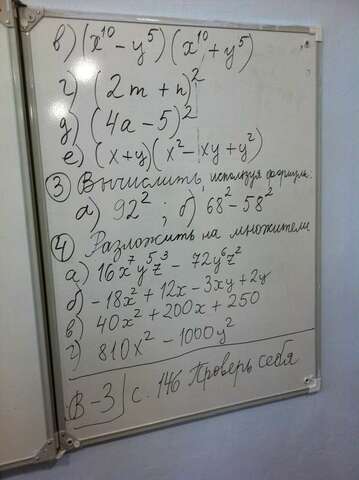 в) (x¹⁰ - y⁵)(x¹⁰ + y⁵)
г) (2m + n)²
д) (4a - 5)²
е) (x+y)(x² - xy + y²)
③ Вычислить, используя формулы:
а) 92² ; б) 68² - 58²
④ Разложить на множители
а) 16x⁷y⁵z³ - 72y⁶z²
б) -18x² + 12x - 3xy + 2y
в) 40x² + 200x + 250
г) 810x² - 1000y²
В-3 с. 146 Проверь себя